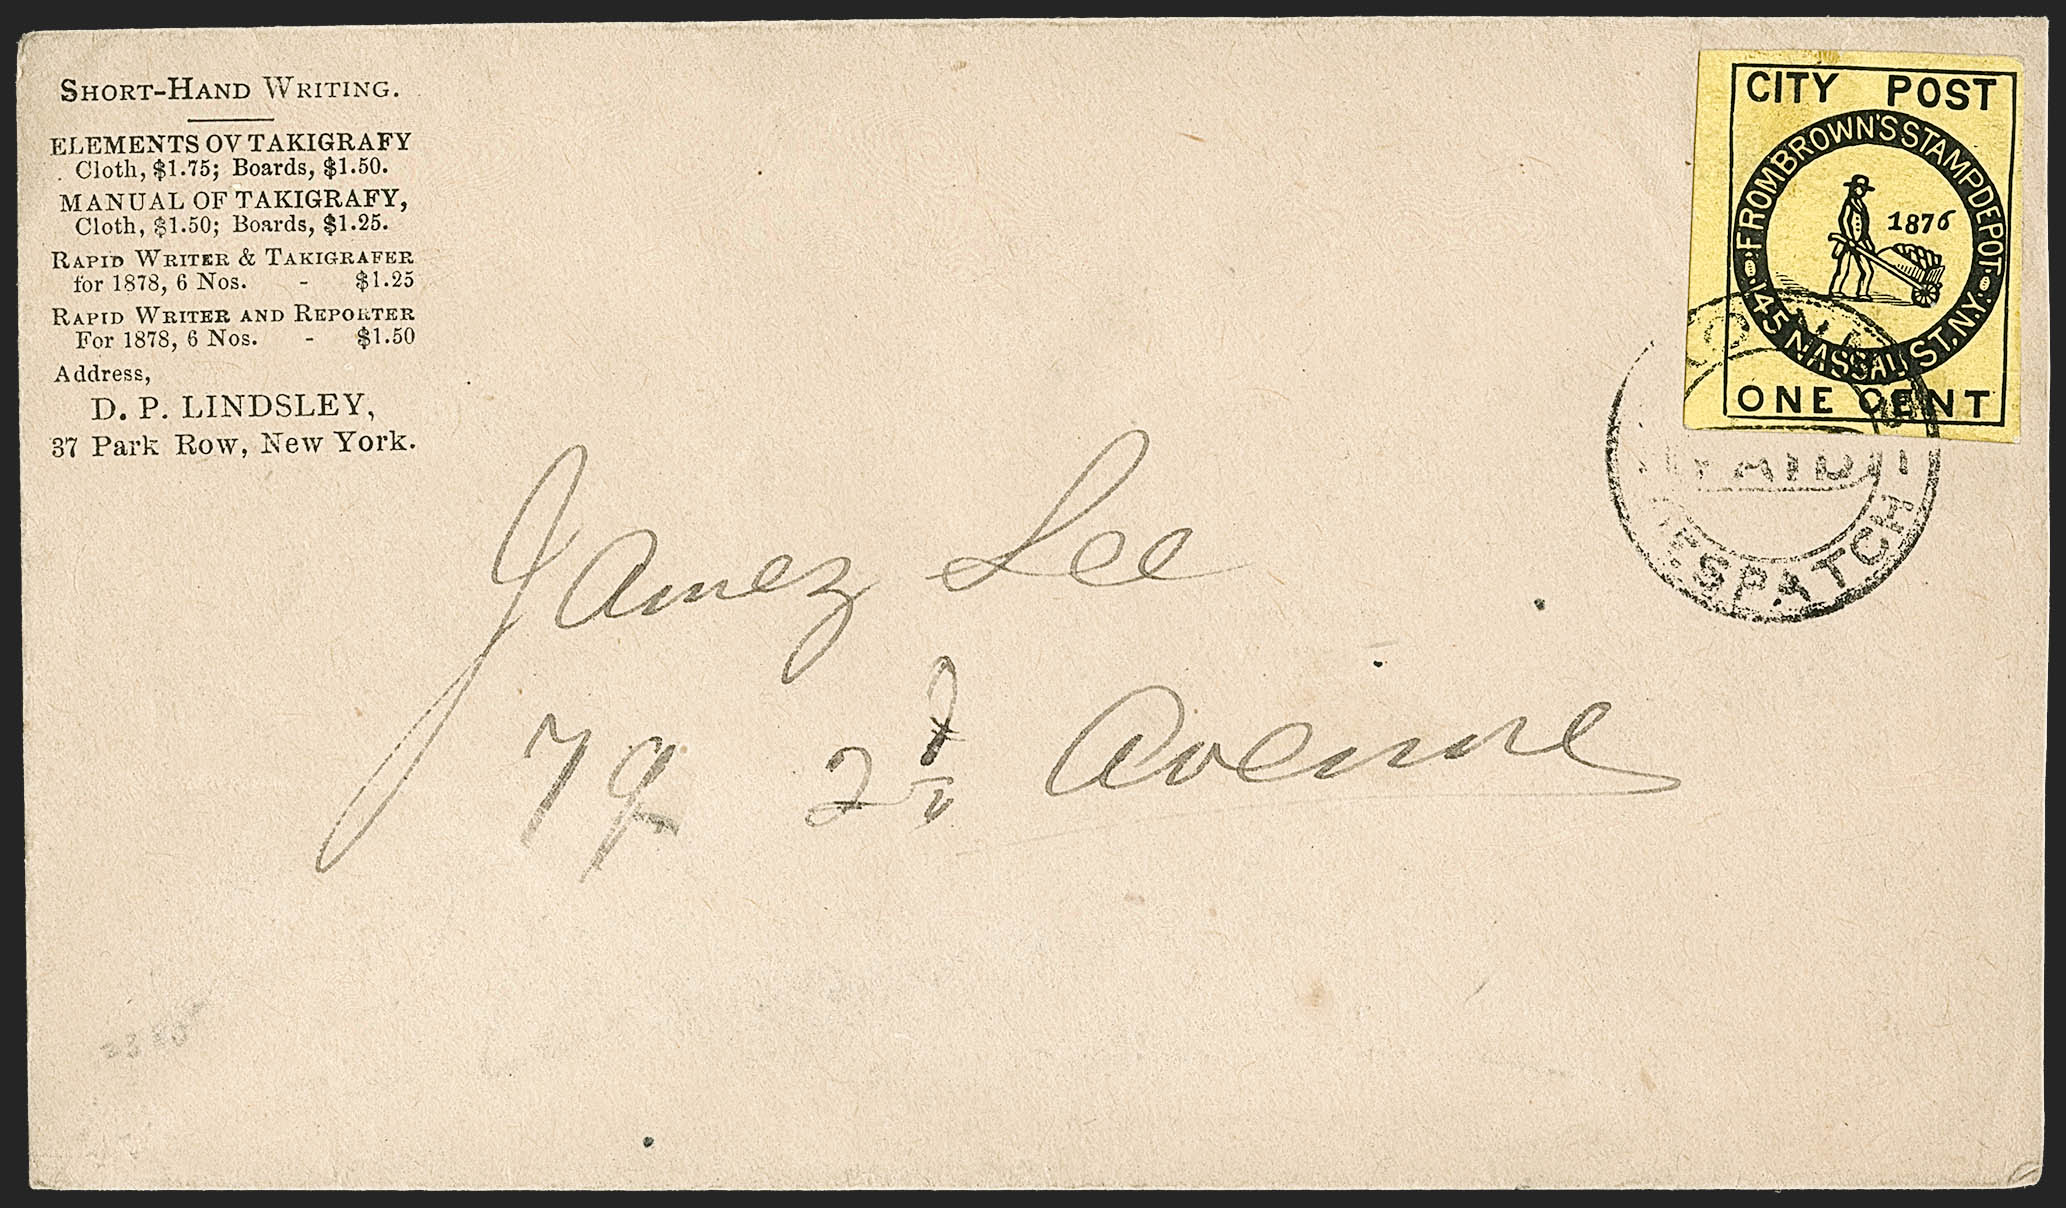 SHORT-HAND WRITING.
ELEMENTS OV TAKIGRAFY
Cloth, $1.75; Boards, $1.50.
MANUAL OF TAKIGRAFY,
Cloth, $1.50; Boards, $1.25.
RAPID WRITER & TAKIGRAFER
for 1878, 6 Nos. - $1.25
RAPID WRITER AND REPORTER
For 1878, 6 Nos. - $1.50
Address,
D. P. LINDSLEY,
37 Park Row, New York.
CITY POST
FROM BROWN'S STAMP DEPOT.
1876
145 NASSAU ST. N.Y.
ONE CENT
PAID
DESPATCH
Jamez Lee
79 2d Avenue